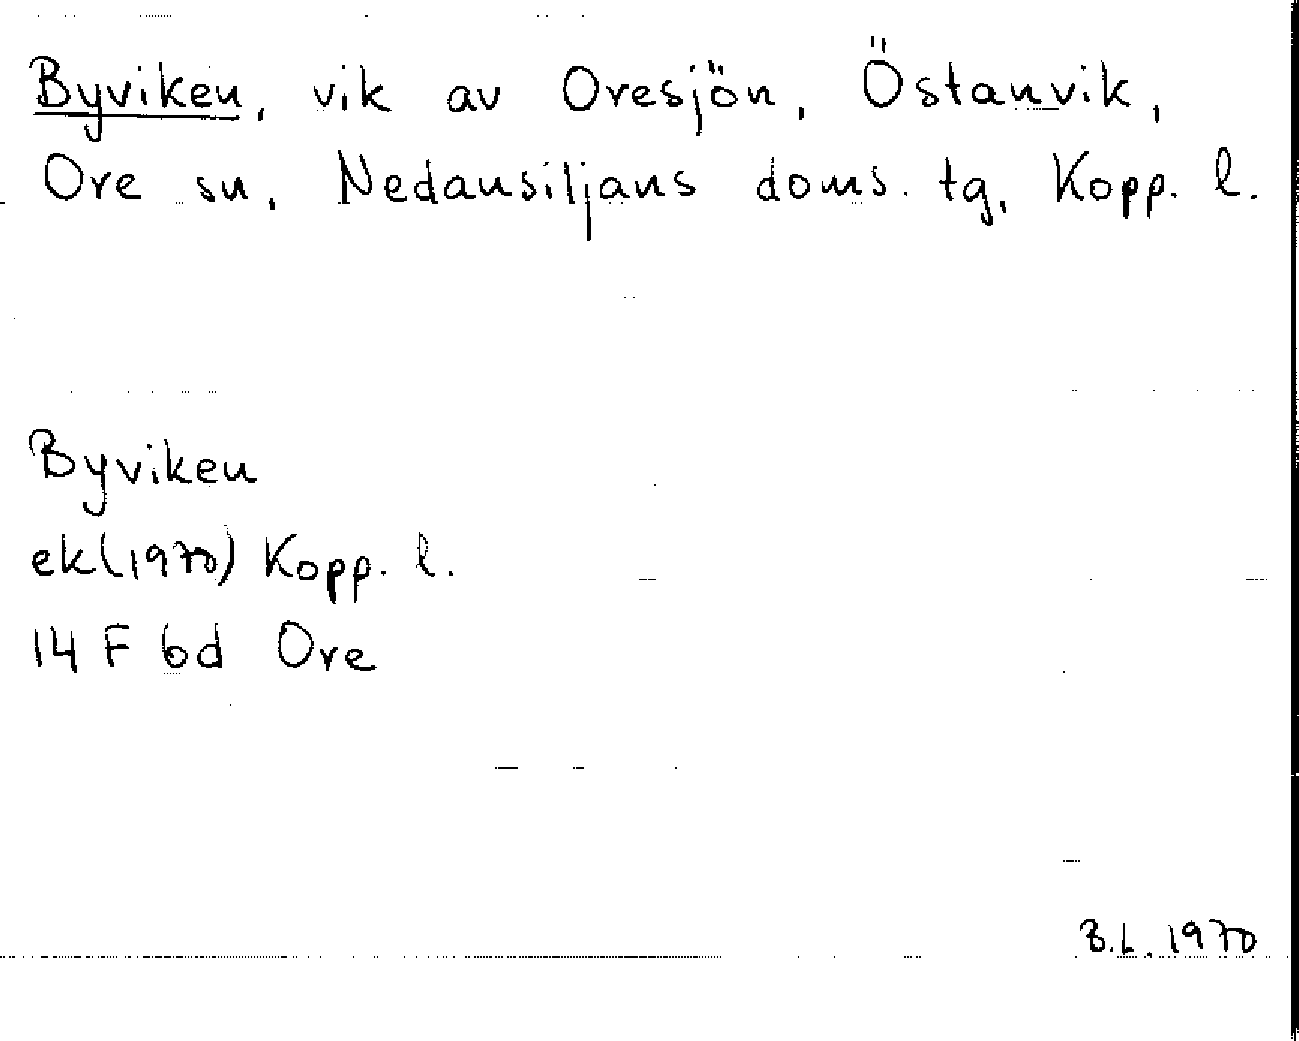 Byviken, vik av Oresjön, Östanvik,
Ore sn, Nedansiljans doms. tg, Kopp. l.
Byviken
ek(1970) Kopp. l.
14 F 6d Ore
B.L. 1970